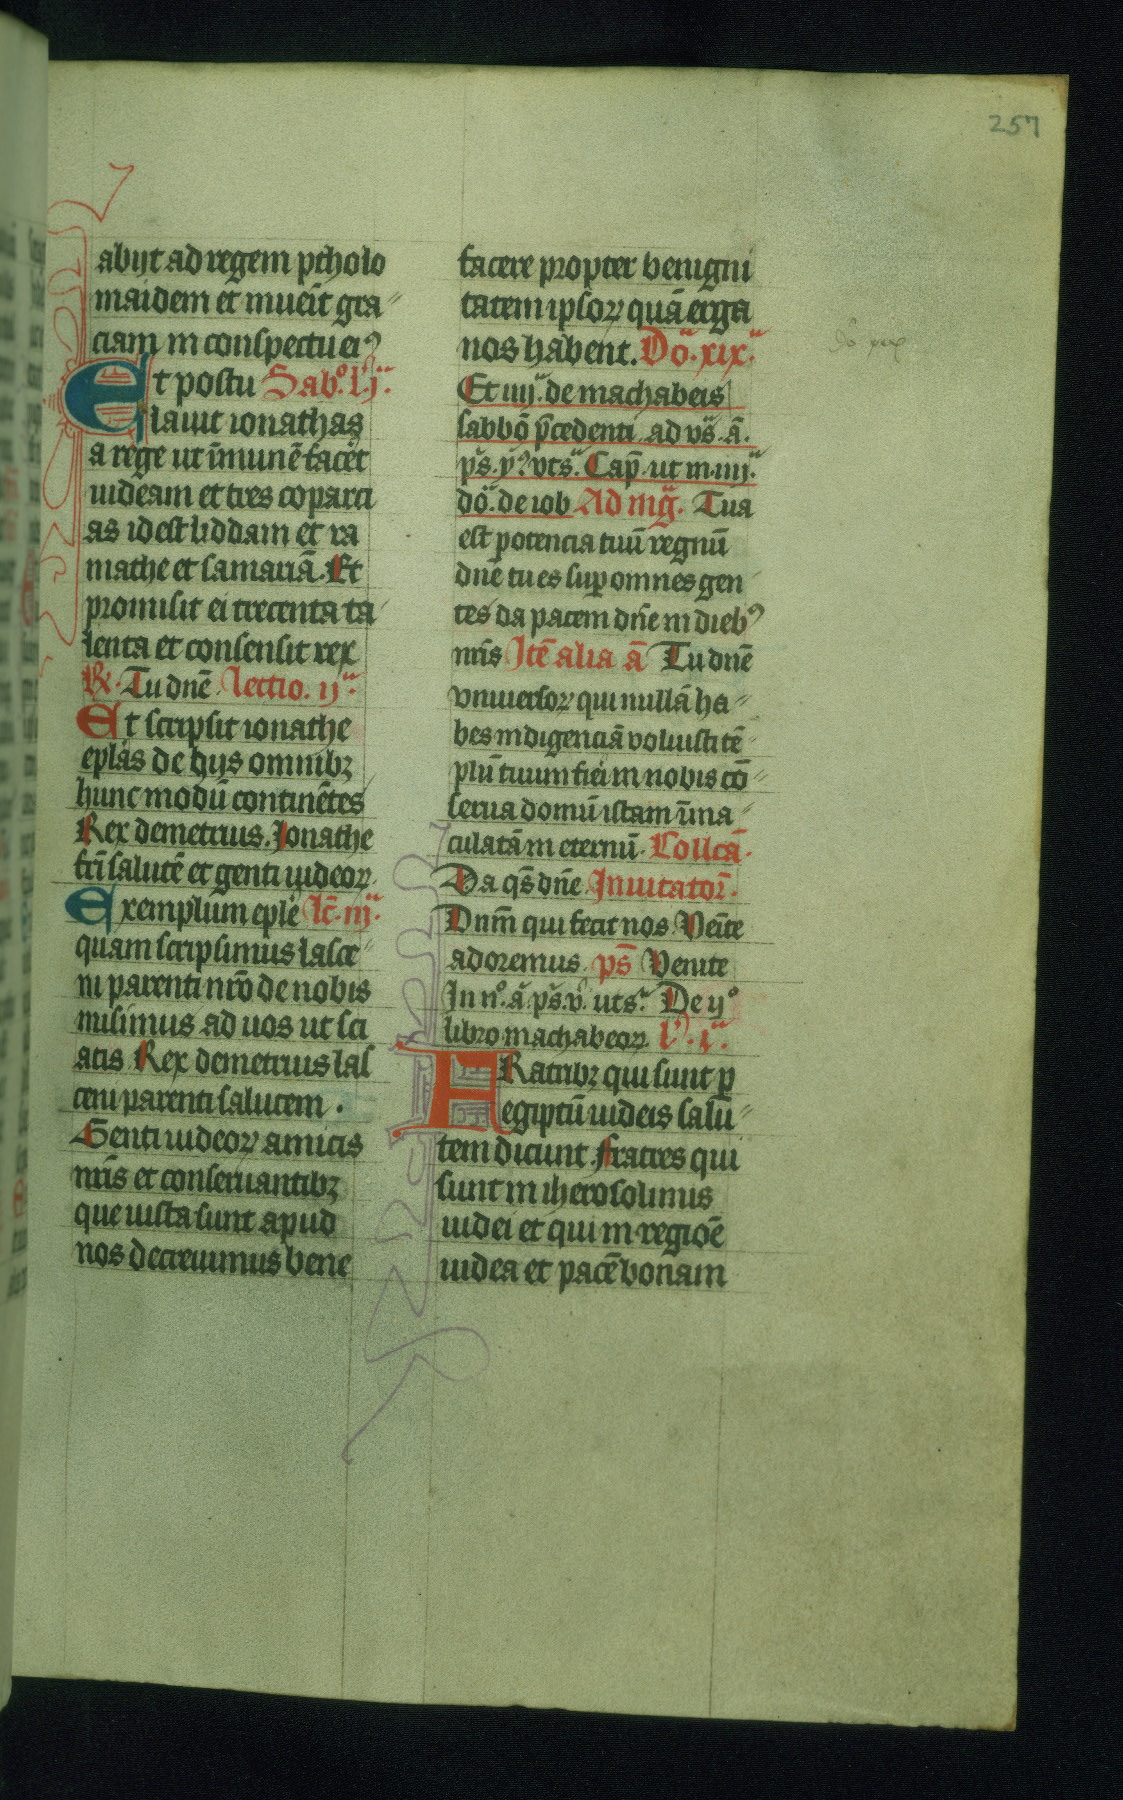 257
abijt ad regem ptholo
maidem et inuenit gra
ciam in conspectu eiꝰ
Et postu Sabᵒ. l' jᵃ.
lauit ionathas
a rege ut īmunē facēt
iudeam et tres coparci
as id est liddam et ra
mathe et samariā. Et
promisit ei trecenta ta
lenta et consensit rex
R. Tu dnē Lectio. ijᵃ.
Et scripsit ionathe
eplas de hijs omnibꝫ
hunc modū continētes
Rex demetrius. Jonathe
fri salutē et genti iudeoꝝ
Exemplum eple lc̄. iijᵃ.
quam scripsimus lasce
ni parenti nr̄o de nobis
misimus ad uos ut sci
atis Rex demetrius las
ceni parenti salutem .
Genti iudeoꝝ amicis
nr̄is et conseruantibꝫ
que iusta sunt apud
nos decreuimus bene
facere propter benigni
tatem ipsoꝝ quā erga
nos habent. Dō. xixᵃ.
Et iiijᵃ. de machabeis
sabbō p̄cedenti ad vs̄. ā.
Cap̄. ut in iiijᵃ
dō. de iob Ad mḡ. Tua
est potencia tuū regnū
dnē tu es sup omnes gen
tes da pacem dn̄e in diebꝰ
nr̄is Jtē alia ā Tu dnē
vniuersoꝝ qui nullā ha
bes indigenciā voluisti tē
plū tuum fiei in nobis cō
serua domū istam īma
culatā in eternū. Collcā.
Da qs̄ dn̄e Jnuitatoꝛ̄.
Dnm̄ qui fecit nos Venite
adoremus. ps̄ Venite
Jn nᵒ. ā. ps̄. v̄. ut sᵃ. De ijᵒ
libro machabeoꝝ. l' jᵃ.
FRatribꝫ qui sunt p
egiptū iudeis salū
tem dicunt. fratres qui
sunt in iherosolimus
iudei et qui in regiōe
iudea et pacē bonam